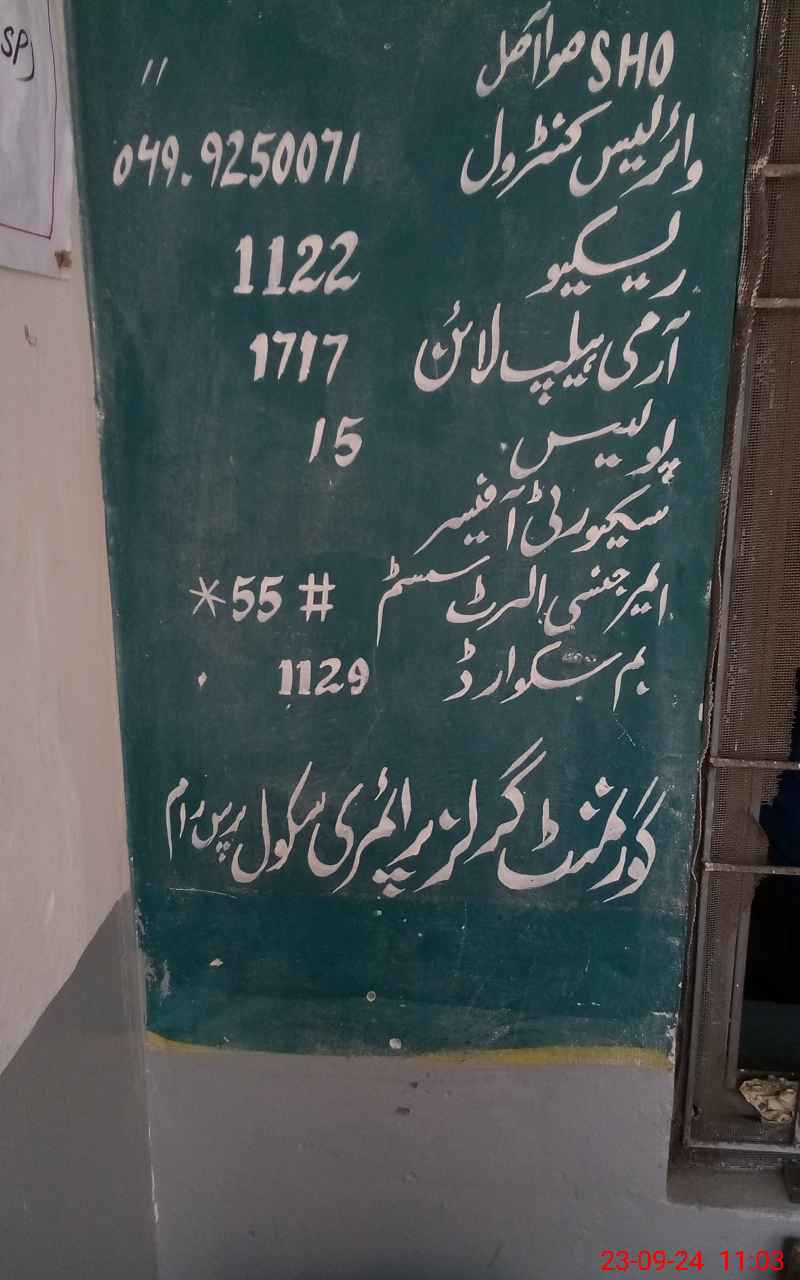 SP
SHO مواآصل 11
وائرلیس کنٹرول 049.9250071
ریسکیو 1122
آرمی ہیلپ لائن 1717
پولیس 15
سیکیورٹی آفیسر
ایمرجنسی الرٹ سسٹم # 55*
بم سکوارڈ 1129
گورنمنٹ گرلز پرائمری سکول پرس رام
23-09-24 11:03